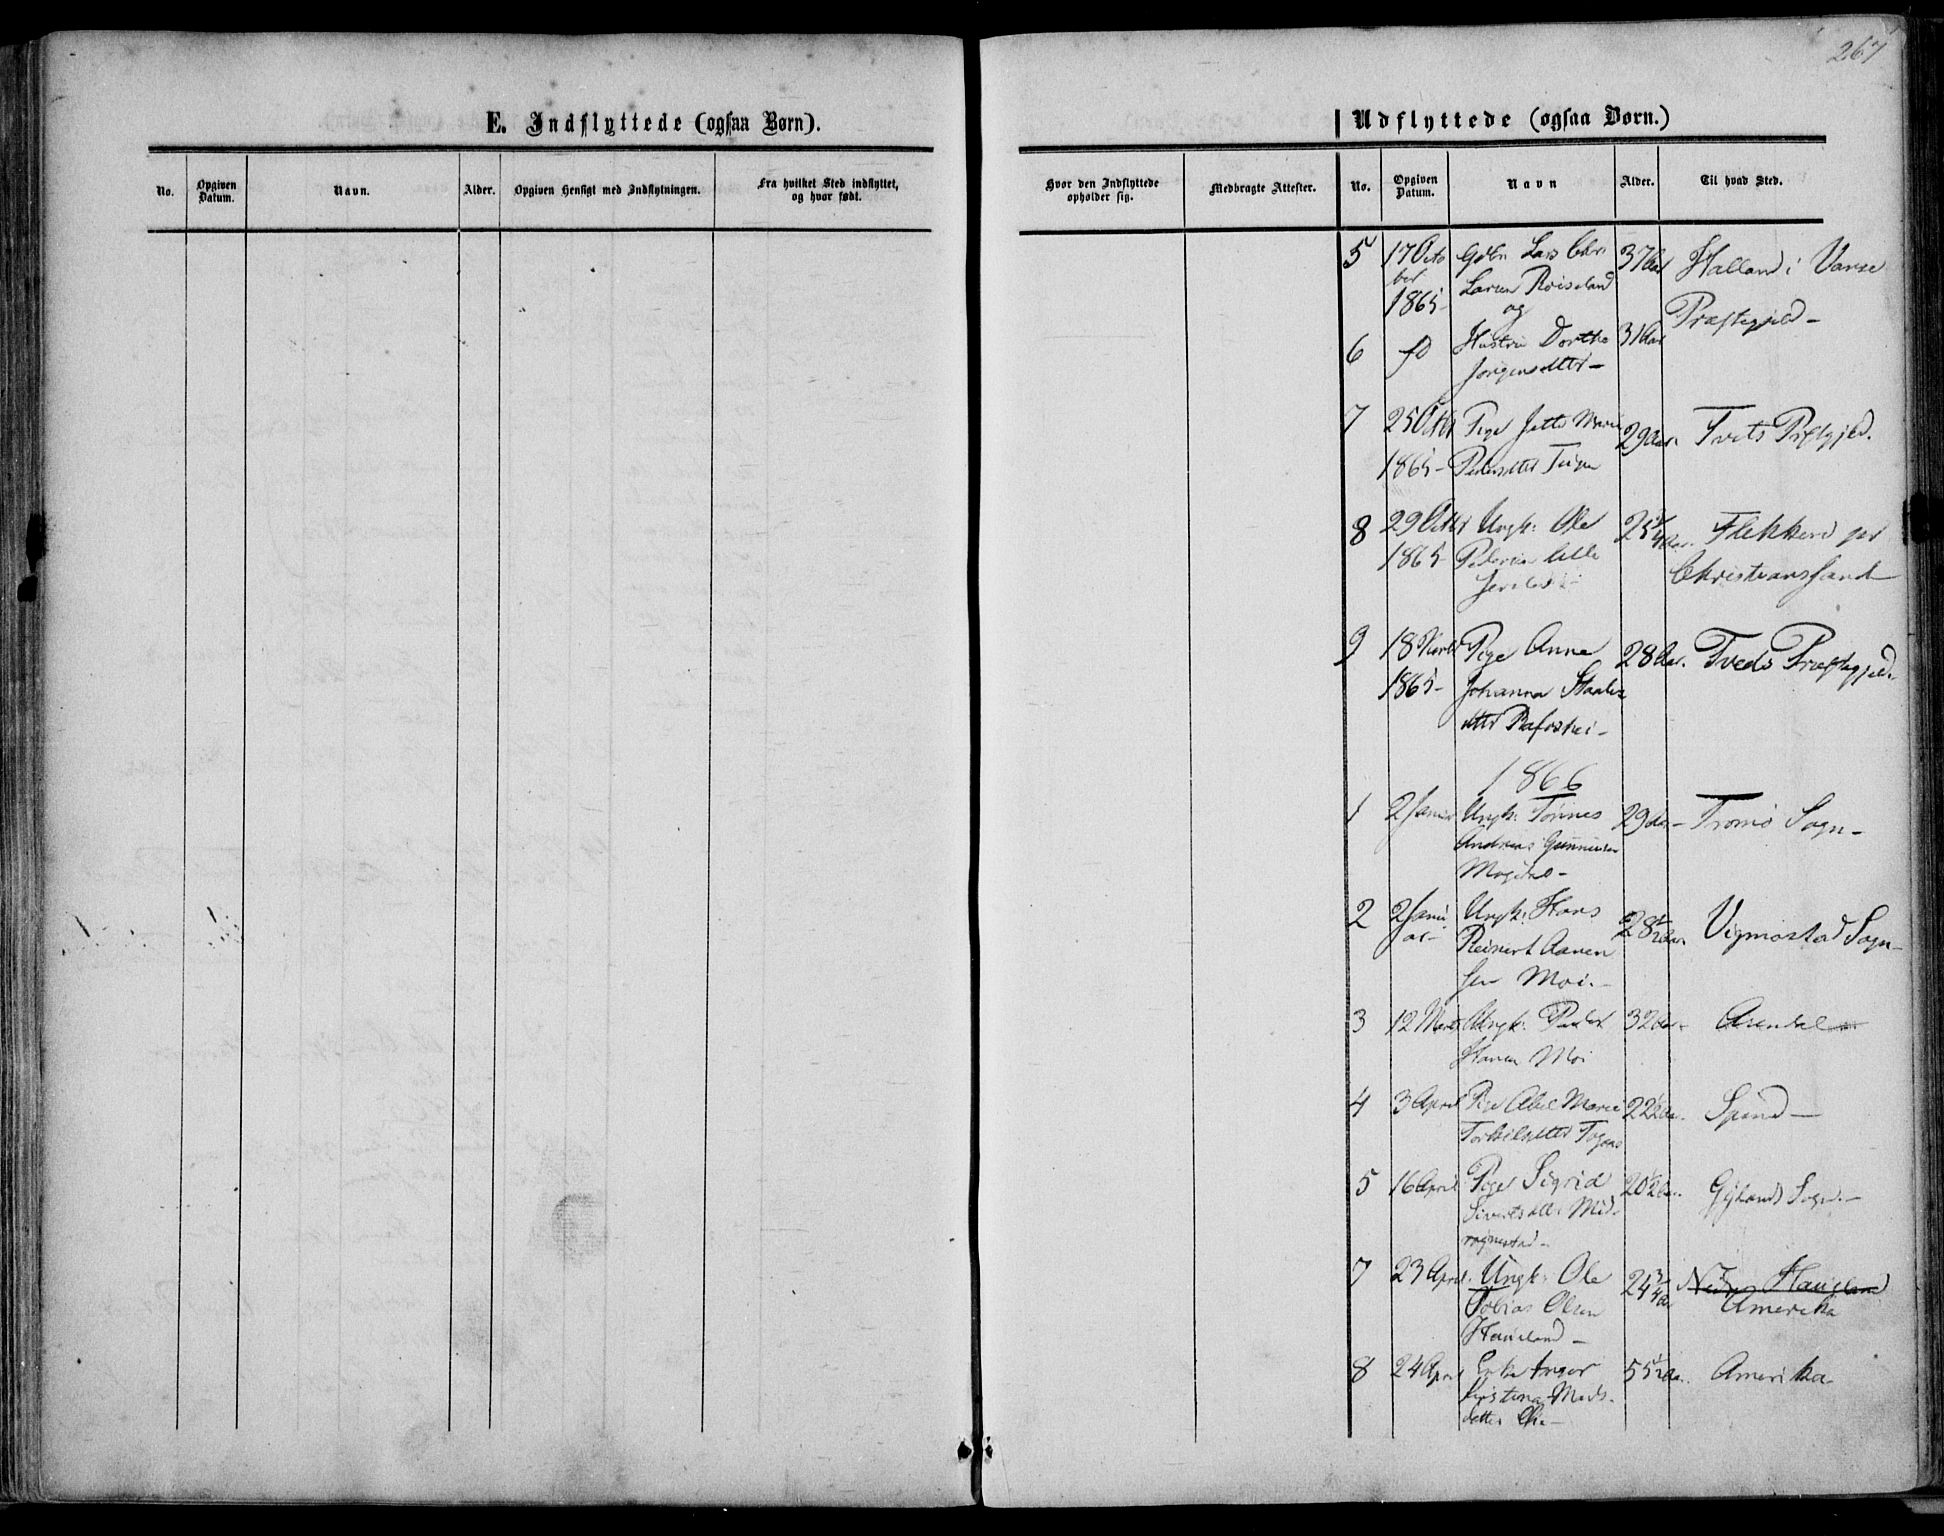 267
E. Indflyttede (ogsaa Børn).
No.
Opgiven Datum.
Navn.
Alder.
Opgiven Hensigt med Indflytningen.
Fra hvilket Sted indflyttet, og hvor født.
Udflyttede (ogsaa Børn.)
Hvor den Indflyttede opholder sig.
Medbragte Attester.
No.
Opgiven Datum.
Navn
Alder.
Til hvad Sted.
5 17 Octo Lars Chr: 37 Aar Halland i Vanse
ber Larsen Røiseland Præstegjeld -
1865 - og
6 Hustru Dorthe 31 Aar
Jørgensdtter -
7 25 Octbr Pige Marie 29 Aar. Tvets Præstgjeld.
1865 - Pedersdtter
8 29 Octbr Ungk: Ole 25 1/4 Aar. Flekkerø per
1865 Pedersen Christianssand -
9 18 Novbr Pige Anne 28 Aar. Tveds Præstegjeld.
1865 - Johanna
dtter
1866
1 2 Januar Ungk: Tønnes 29 Aar - Tromø Sogn -
Andreas Gunnersen
2 2 Janu Ungk: Hans 28 1/2 Aar. Vigmostad Sogn -
ar - Reinert Aanen
sen Moi. -
3 12 Marts Ungk: 32 Aar - Arendal
Hansen Moi
4 3 April Pige Abel Marie 22 1/2 Aar. Spind -
Torkelsdtter
5 16 April Pige Sigrid 20 1/2 Aar. Gylands Sogn. -
Sivertsdtter
7 23 April. Ungk: Ole 24 3/4 Aar Haugland
Tobias Olsen Amerika
Haugland -
8 24 April Enke Inger 55 1/2 Aar. Amerika
Kristine Mads
datter